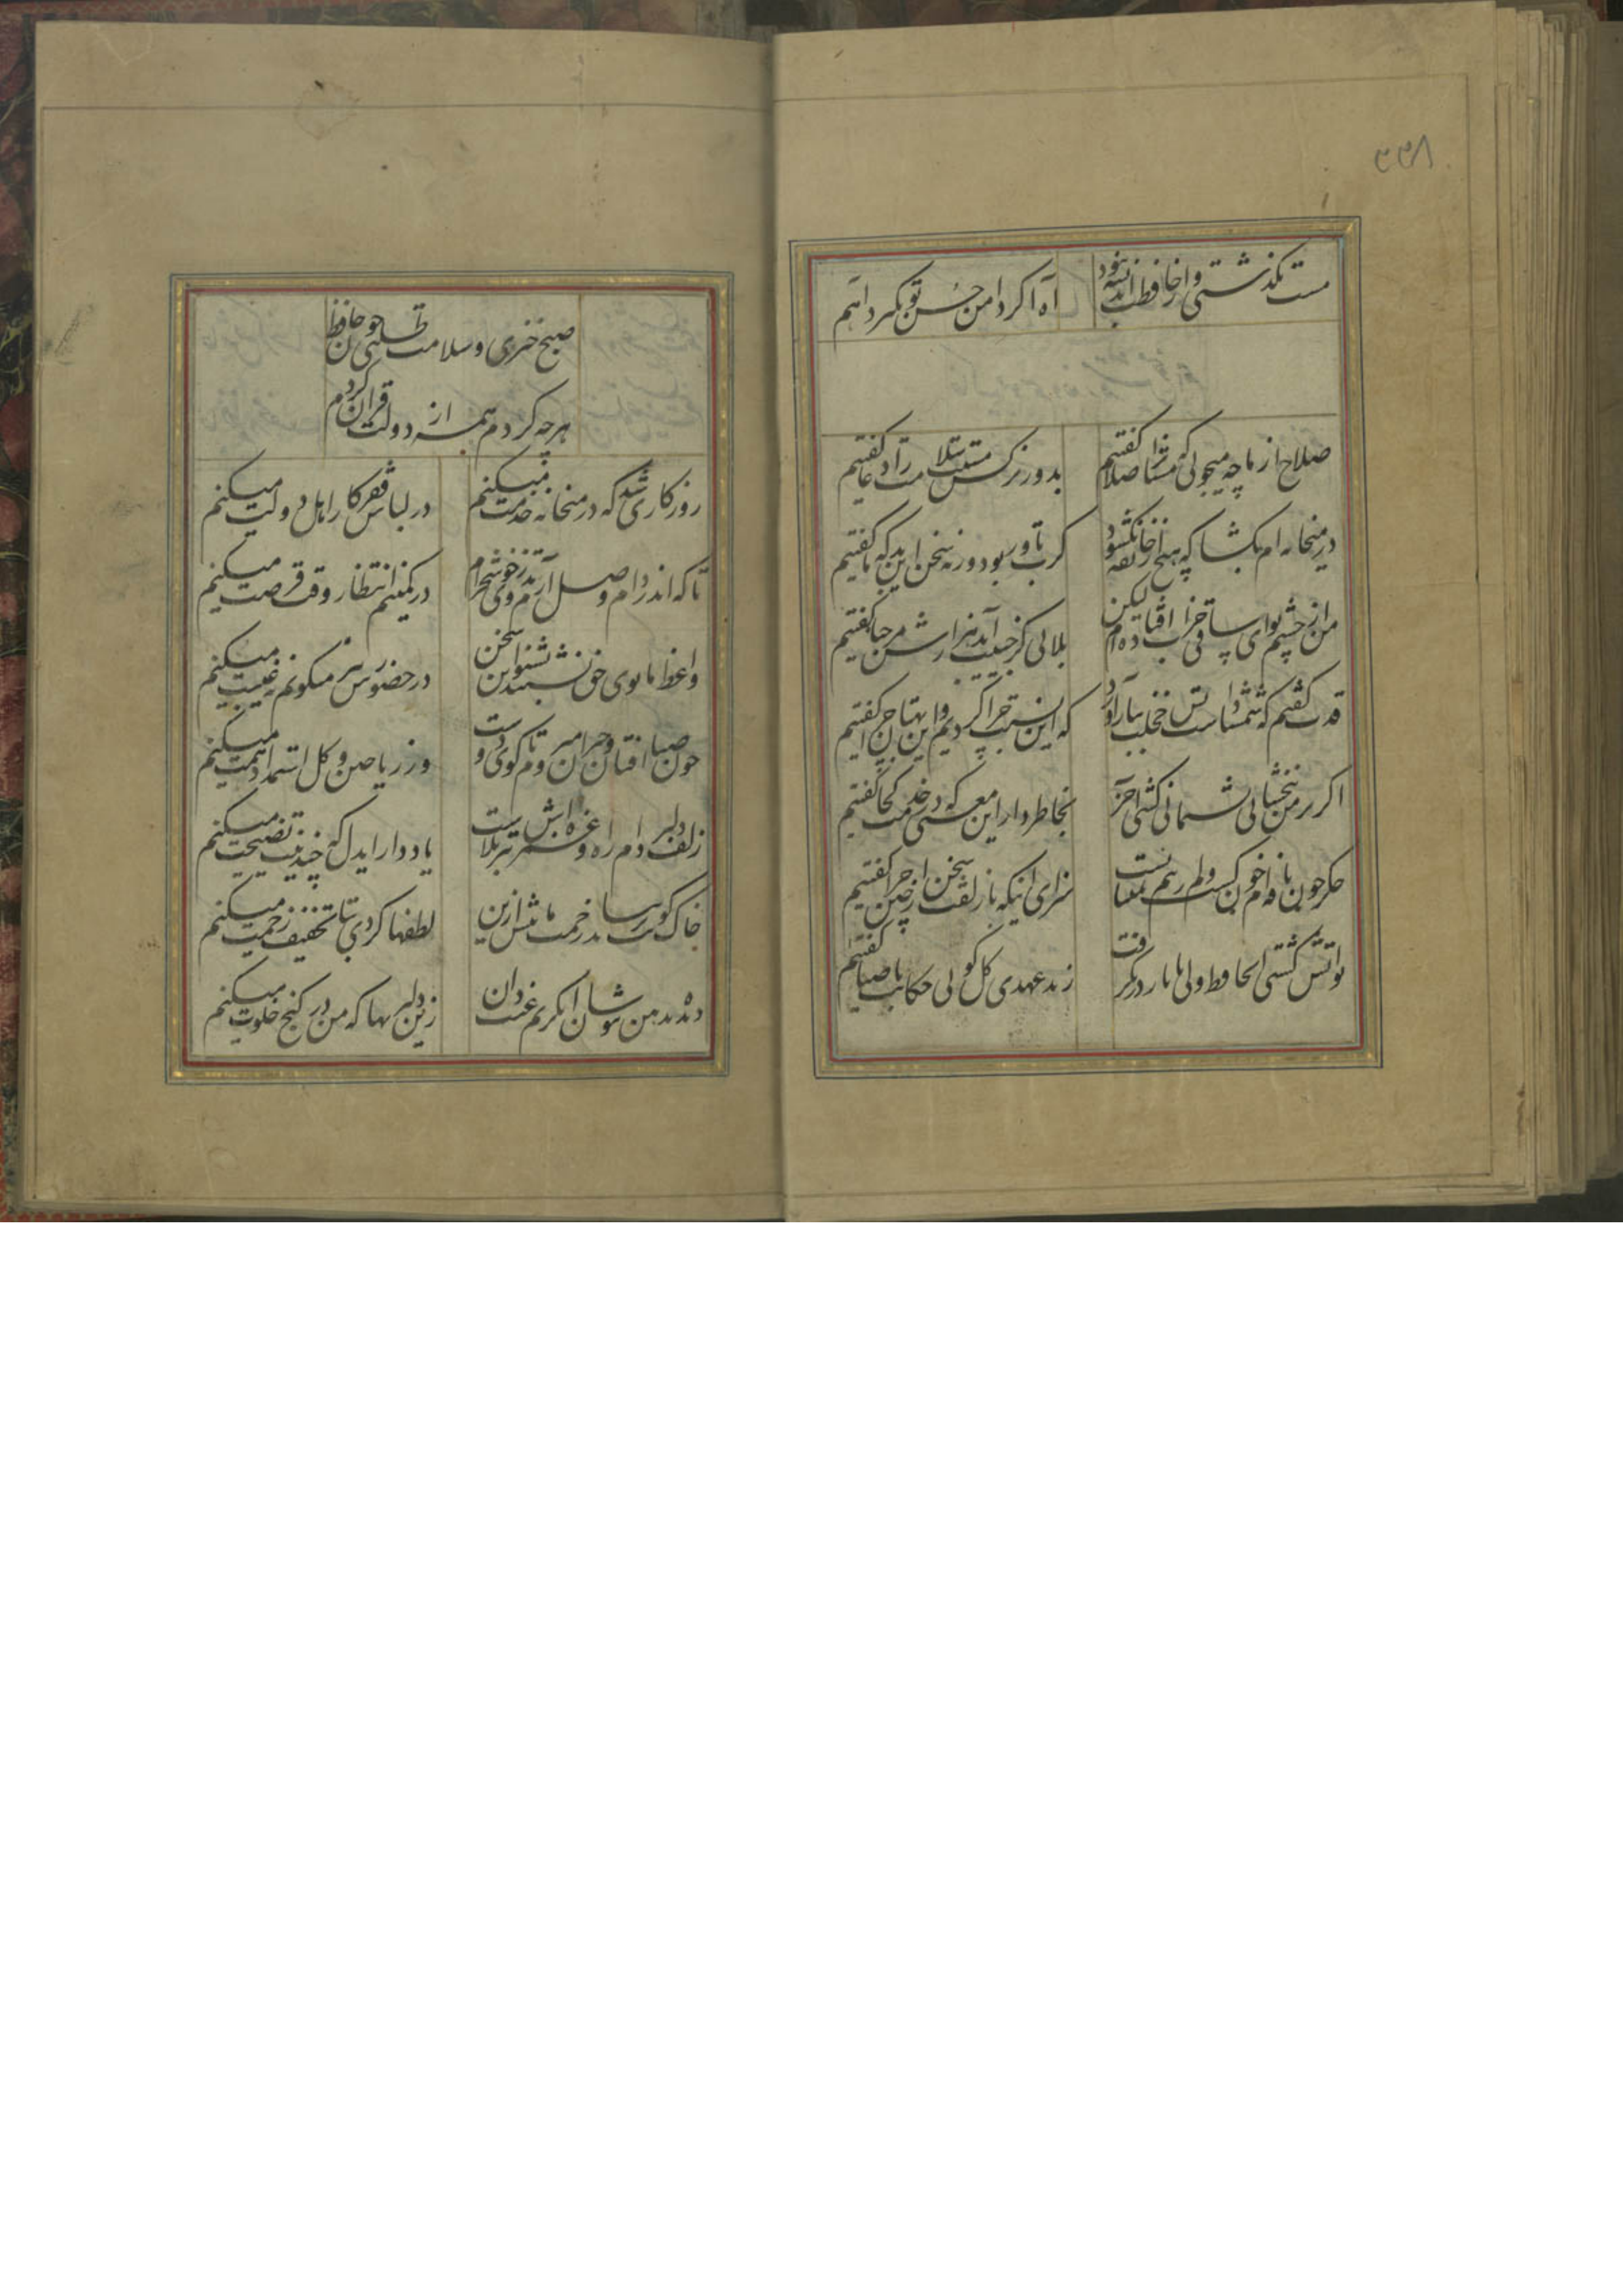 ۲۳۸
مست بگذشتی و از حافظت اندیشه نبود آه اگر دامن حسن تو بگیرد آهم
صلاح از ما چه میجوئی که مستانرا صلا گفتیم بدور نرگس مستت سلامت را دعا گفتیم
در میخانه ام بکشا که هیچ از خانقه نکشود گرت باور بود ورنه سخن این بد که ما گفتیم
من از چشم تو ای ساقی خراب افتاده ام لیکن بلائی کز حبیب آید هزارش مرحبا گفتیم
قدت گفتم که شمشادست و بس خجلت ببار آورد که این نسبت چرا کردیم و این بهتان چرا گفتیم
اگر بر من نبخشائی پشیمانی کشی آخر بخاطر دار این معنی که در خدمت کجا گفتیم
جگر چون نافه ام خون گشت و کم زینم نمیبایست سزای اینکه با زلفت سخن از چین چرا گفتیم
تو آتش گشتی ای حافظ ولی با یار در نگرفت ز بد عهدی گل گوئی حکایت با صبا گفتیم
صبح خیزی و سلامت طلبی چون حافظ
هر چه کردم همه از دولت قرآن کردم
روزگاری شد که در میخانه خدمت میکنم در لباس فقر کار اهل دولت میکنم
تا که اندر دام وصل آرم تذروی خوشخرام در کمینم انتظار وقت فرصت میکنم
واعظ ما بوی حق نشنید بشنو این سخن در حضورش نیز میگویم نه غیبت میکنم
چون صبا افتان و خیزان میروم تا کوی دوست وز ریاحین و گل استمداد همت میکنم
زلف دلبر دام راه و غمزه اش تیر بلاست یاد دار ایدل که چندینت نصیحت میکنم
خاک کویت بر نتابد زحمت ما بیش ازین لطفها کردی بتا تخفیف زحمت میکنم
دیده بد بین بپوشان ای کریم غیب دان زین دلیریها که من در کنج خلوت میکنم